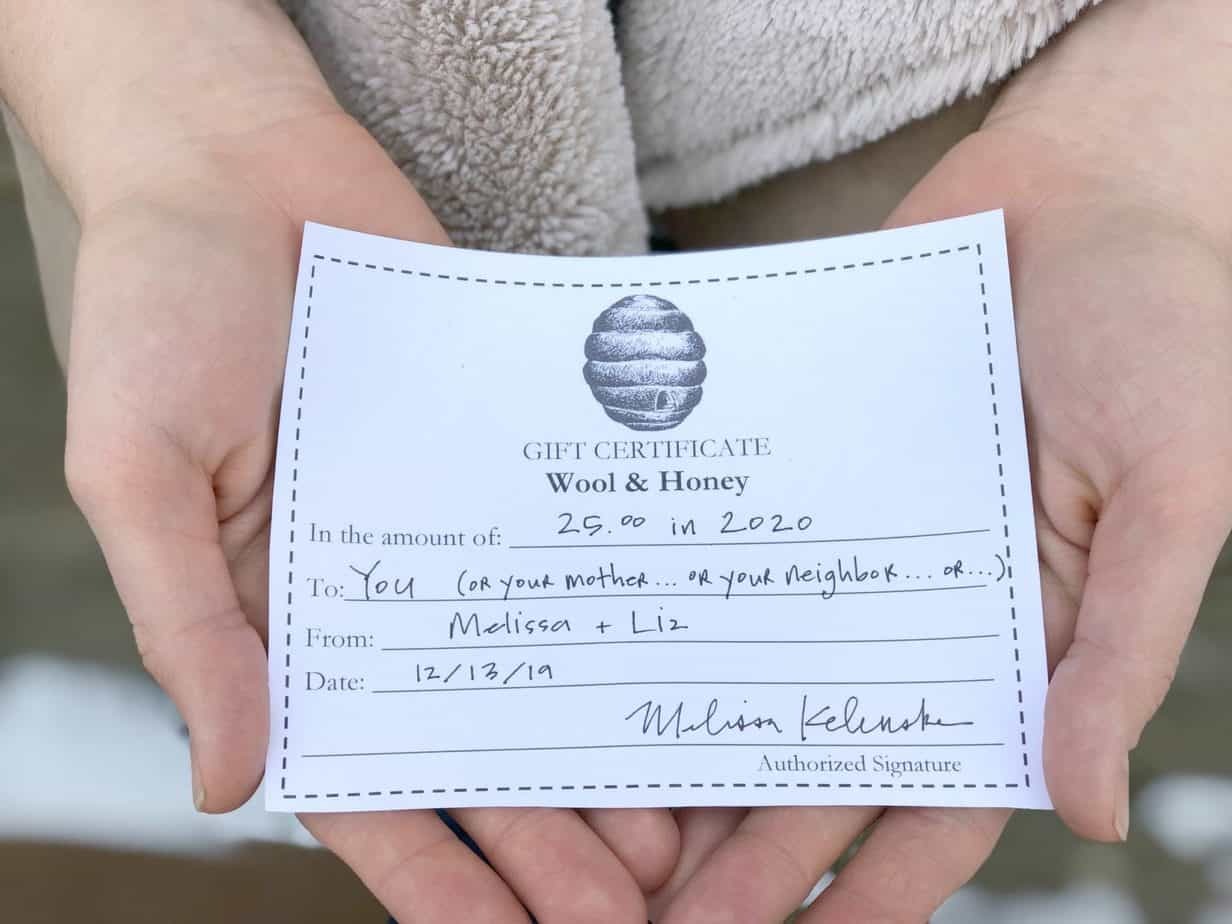 GIFT CERTIFICATE
Wool & Honey
In the amount of: 25.00 in 2020
To: You (or your mother... or your neighbor... or...)
From: Melissa + Liz
Date: 12/13/19
Melissa Kelenske
Authorized Signature